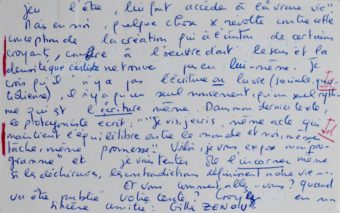 jeu l'être, lui font accéder à la vraie vie".
Mais en moi, quelque chose se révolte contre cette
conception de la création qui à l'instar de certains
croyants, confère à l'œuvre d'art le sens et la
densité que l'artiste ne trouve pas en lui-même. Je
crois qu'il n'y a pas l'écriture ou la vie (sociale, quo-
tidienne), il n'y a qu'un seul mouvement, qu'un seul ryth-
me qui est l'écriture même. Dans mon dernier texte,
le protagoniste écrit: "Je vis, j'écris, même acte qui
maintient l'équilibre entre le monde et moi, même
tâche, même promesse". Voilà, je vous expose mon pro-
gramme" et je vais tenter de l'incarner même
si les déchirures, les contradictions définissent notre vie
Et vous comment allez-vous? quand
va être publié votre conte? Croyez en ma
sincère amitié: Gisi ZENOU